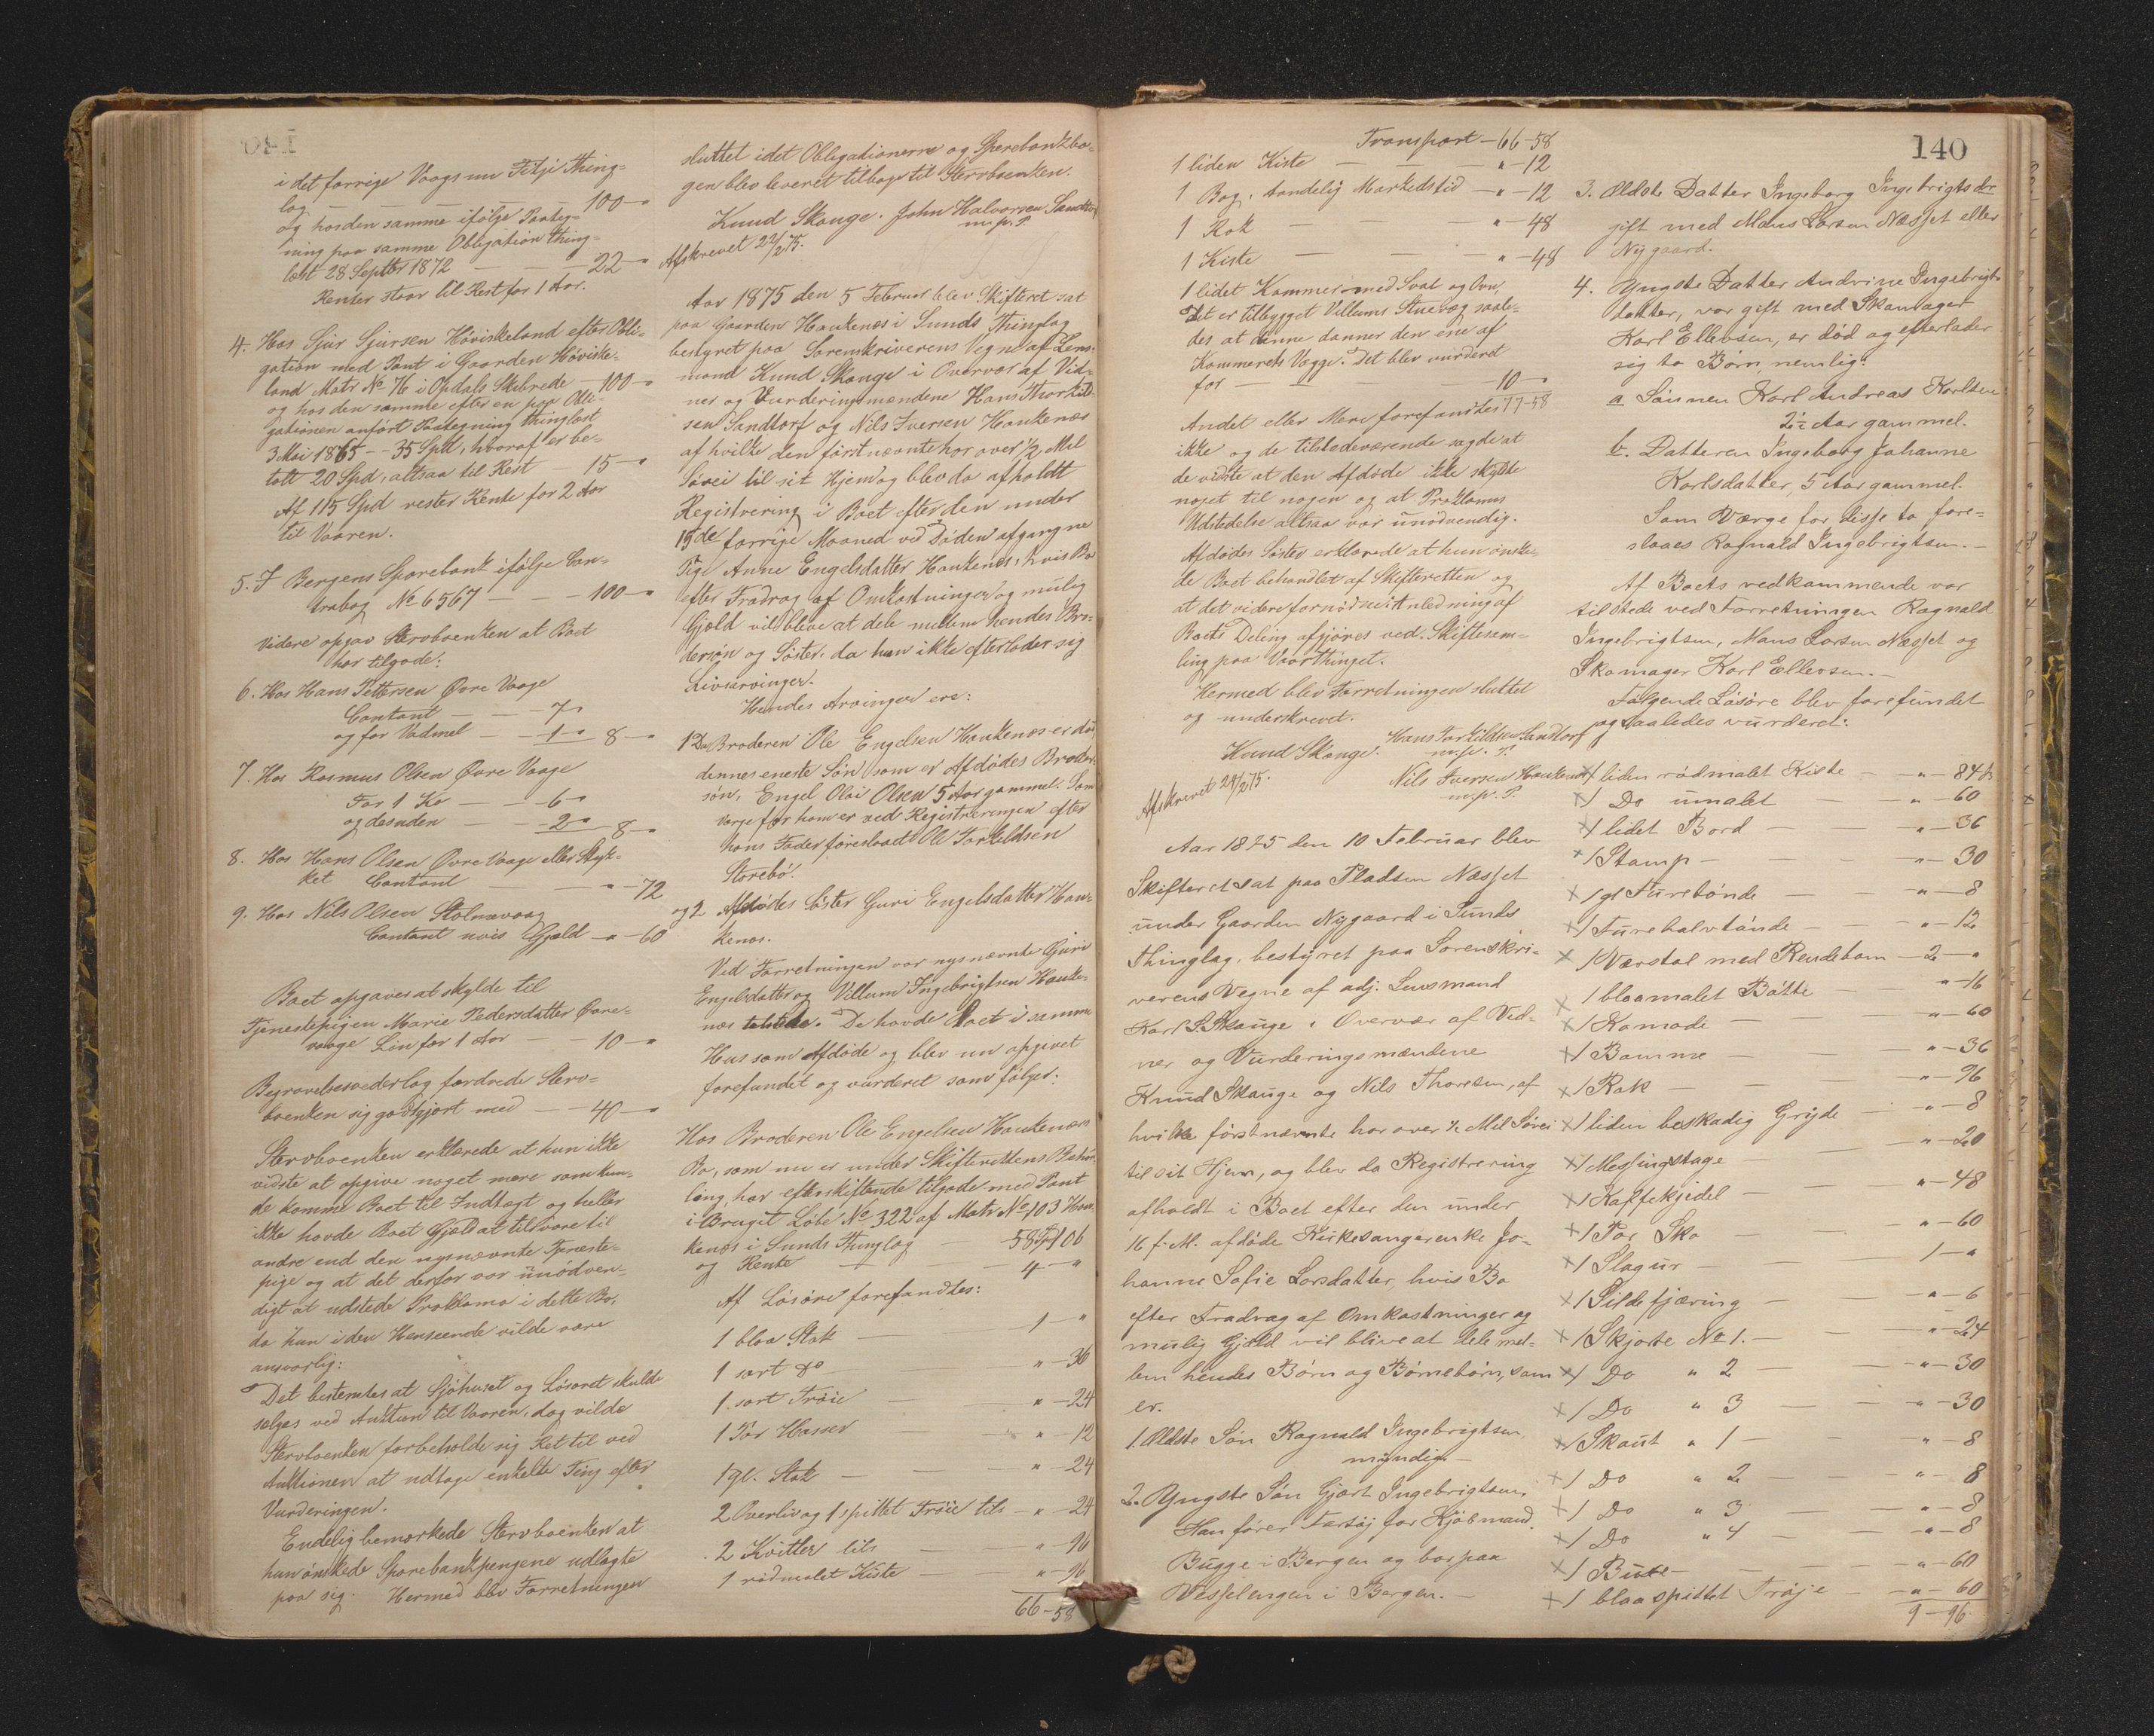 i det forrige Vaags nu Fitje Thing-
lag — — — — 100 — "
og hos den samme ifølge Paateg-
ning paa samme Obligation thing-
læst 28 Septbr 1872 — — 22 — "
Renter staar til Rest for 1 Aar.
4. Hos Sjur Sjursen Høviskeland efter Obli-
gation med Pant i Gaarden Høviske-
land Matr No 76 i Opdals Skibrede — 100 — "
og hos den samme efter en paa Obli-
gationen anført Paategning thinglæst
3 Mai 1865 — 35 Spd, hvoraf er be-
talt 20 Spd, altsaa til Rest — 15 — "
Af 115 Spd rester Rente for 2 Aar
til Vaaren.
5. I Bergens Sparebank ifølge Con-
trabog No 6567 — — — 100 — "
Videre opgav Stervboenken at Boet
har tilgode:
6. Hos Hans Pettersen Øvre Vaage
Contant — — 7 "
og for Vadmel — — 1 " 8 — "
7. Hos Rasmus Olsen Øvre Vaage
For 1 Ko — — 6 "
og desuden — — 2 " 8 — "
8. Hos Hans Olsen Øvre Vaage eller Styk-
ket Contant — — " — 72
9. Hos Nils Olsen Stolnevaag
Contant uvis Gjæld — " — 60
Boet opgaves at skylde til
Tjenestepigen Marie Pedersdatter Øvre-
vaage Løn for 1 Aar — — 10 — "
Begravelsesvederlag fordrede Sterv-
boenken sig godtgjort med — — 40 — "
Stervboenken erklærede at hun ikke
vidste at opgive noget mere som kun-
de komme Boet til Indtægt og heller
ikke havde Boet Gjæld at tilsvare til
andre end den nysnævnte Tjeneste-
pige og at det derfor var unødven-
digt at udstede Proklama i dette Bo,
da hun i den Henseende vilde være
ansvarlig.
Det bestemtes at Sjøhuset og Løsøret skulde
sælges ved Auktion til Vaaren, dog vilde
Stervboenken forbeholde sig Ret til ved
Auktionen at udtage enkelte Ting efter
Vurderingen.
Endelig bemærkede Stervboenken at
hun ønskede Sparebankpengene udlagte
paa sig. Hermed blev Forretningen
sluttet idet Obligationerne og Sparebankbo-
gen blev leveret tilbage til Stervboenken.
Knud Skauge. John Halvorsen Sandtorv
m. p. P.
Afskrevet 22/2 75.
Aar 1875 den 5 Februar blev Skifteret sat
paa Gaarden Haukenæs i Sunds Thinglag
bestyret paa Sorenskriverens Vegne af Lens-
mand Knud Skauge i Overvær af Vid-
ner og Vurderingsmændene Hans Thorkild-
sen Sandtorf og Nils Iversen Haukenæs
af hvilke den førstnævnte har over 1/2 Mil
Søvei til sit Hjem og blev da afholdt
Registrering i Boet efter den under
15de forrige Maaned ved Døden afgangne
Pige Anne Engelsdatter Haukenæs, hvis Bo
efter Fradrag af Omkostninger og mulig
Gjæld vil blive at dele mellem hendes Bro-
dersøn og Søster, da hun ikke efterlader sig
Livsarvinger.
Hendes Arvinger ere:
1 Da Broderen Ole Engelsen Haukenæs er død
dennes eneste Søn, som er Afdødes Broder-
søn, Engel Olai Olsen 5 Aar gammel. Som
Værge for ham er ved Registreringen efter
hans Fader foreslaaet Ole Torkildsen
Storebø.
og 2 Afdødes Søster Guri Engelsdatter Hau-
kenæs.
Ved Forretningen var nysnævnte Guri
Engelsdatter og Villum Ingebrigtsen Hauke-
næs tilstede. De havde boet i samme
Hus som Afdøde og blev nu opgivet
forefundet og vurderet som følger:
Hos Broderen Ole Engelsen Haukenæs
Bo, som nu er under Skifterettens Behand-
ling, har efterskiftende tilgode med Pant
i Bruget Løbe No 322 af Matr No 103 Hau-
kenæs i Sunds Thinglag — 58 106
og Rente — — 4 — "
Af Løsøre forefandtes:
1 blaa Stak — — 1 — "
1 sort do — — " — 36
1 sort Trøie — — " — 24
1 Par Hasser — — " — 12
1 gl. Stak — — " — 24
2 Overliv og 1 spittet Trøie tils — " — 24
2 Kvitler tils — — " — 96
1 rødmalet Kiste — — " — 96
66 — 58
140
Transport — 66 — 58
1 liden Kiste — — — " — 12
1 Bog, Aandelig Markedstid — " — 12
1 Rok — — " — 48
1 Kiste — — " — 48
1 lidet Kammer med Sval og Ovn,
det er tilbygget Villums Stue og saale-
des at denne danner den ene af
Kammerets Vægge. Det blev vurderet
for — — — 10 — "
77 — 58
Andet eller Mere forefandtes
ikke og de tilstedeværende sagde at
de vidste at den Afdøde ikke skyldte
noget til nogen og at Proklamas
Udstedelse altsaa var unødvendig.
Afdødes Søster erklærede at hun ønske-
de Boet behandlet af Skifteretten og
at det videre fornødne i Anledning af
Boets Deling afgjøres ved Skiftesam-
ling paa Vaarthinget.
Hermed blev Forretningen sluttet
og underskrevet.
Knud Skauge. Hans Torkildsen Sandtorf
m. p. P.
Nils Iversen Haukenæs
m. p. P.
Afskrevet 24/2 75.
Aar 1875 den 10 Februar blev
Skifteret sat paa Pladsen Næsset
under Gaarden Nygaard i Sunds
Thinglag, bestyret paa Sorenskri-
verens Vegne af adj. Lensmand
Karl S. Skauge i Overvær af Vid-
ner og Vurderingsmændene
Knud Skauge og Nils Thoresen, af
hvilke førstnævnte har over 1/2 Mil Søvei
til sit Hjem, og blev da Registrering
afholdt i Boet efter den under
16 f. M. afdøde Kirkesangerenke Jo-
hanne Sofie Larsdatter, hvis Bo
efter Fradrag af Omkostninger og
mulig Gjæld vil blive at dele mel-
lem hendes Børn og Børnebørn, som
er.
1. Ældste Søn Ragnald Ingebrigtsen,
myndig —
2. Yngste Søn Gjært Ingebrigtsen.
Han fører Fartøj for Kjøbmand
Bugge i Bergen og bor paa
Vesselengen i Bergen. —
3. Ældste Datter Ingeborg Ingebrigtsdr
gift med Mons Larsen Næsset eller
Nygaard.
4. Yngste Datter Andrine Ingebrigts-
datter, var gift med Skomager
Karl Ellevsen, er død og efterlader
sig to Børn, nemlig:
a Sønnen Karl Andreas Karlsen
2½ Aar gammel.
b. Datteren Ingeborg Johanne
Karlsdatter, 5 Aar gammel.
Som Værge for disse to fore-
slaaes Ragnald Ingebrigtsen. —
Af Boets vedkommende var
tilstede ved Forretningen Ragnald
Ingebrigtsen, Mons Larsen Næsset og
Skomager Karl Ellevsen. —
Følgende Løsøre blev forefundet
og saaledes vurderet:
x 1 liden rødmalet Kiste — " — 84 ß
x 1 Do umalet — " — 60
x 1 lidet Bord — " — 36
x 1 Stamp — " — 30
x 1 gl Furetønde — " — 8
x 1 Furehalvtønde — " — 12
x 1 Vævstol med Rendebom — 2 — "
x 1 blaamalet Bøtte — " — 16
x 1 Komode — " — 60
x 1 Bomme — " — 36
x 1 Rok — " — 96
x 1 liden beskadig Gryde — " — 8
x 1 Messingstage — " — 20
x 1 Kaffekjedel — " — 48
x 1 Par Sko — " — 60
x 1 Slagur — 1 — "
x 1 Sildefjæring — " — 6
x 1 Skjorte No 1. — " — 24
x 1 Do " 2 — " — 30
x 1 Do " 3 — " — 30
x 1 Skaut " 1 — " — 8
x 1 Do " 2 — " — 8
x 1 Do " 3 — " — 8
x 1 Do " 4 — " — 8
x 1 — " — 60
x 1 blaaspittet Trøje — " — 60
9 — 96